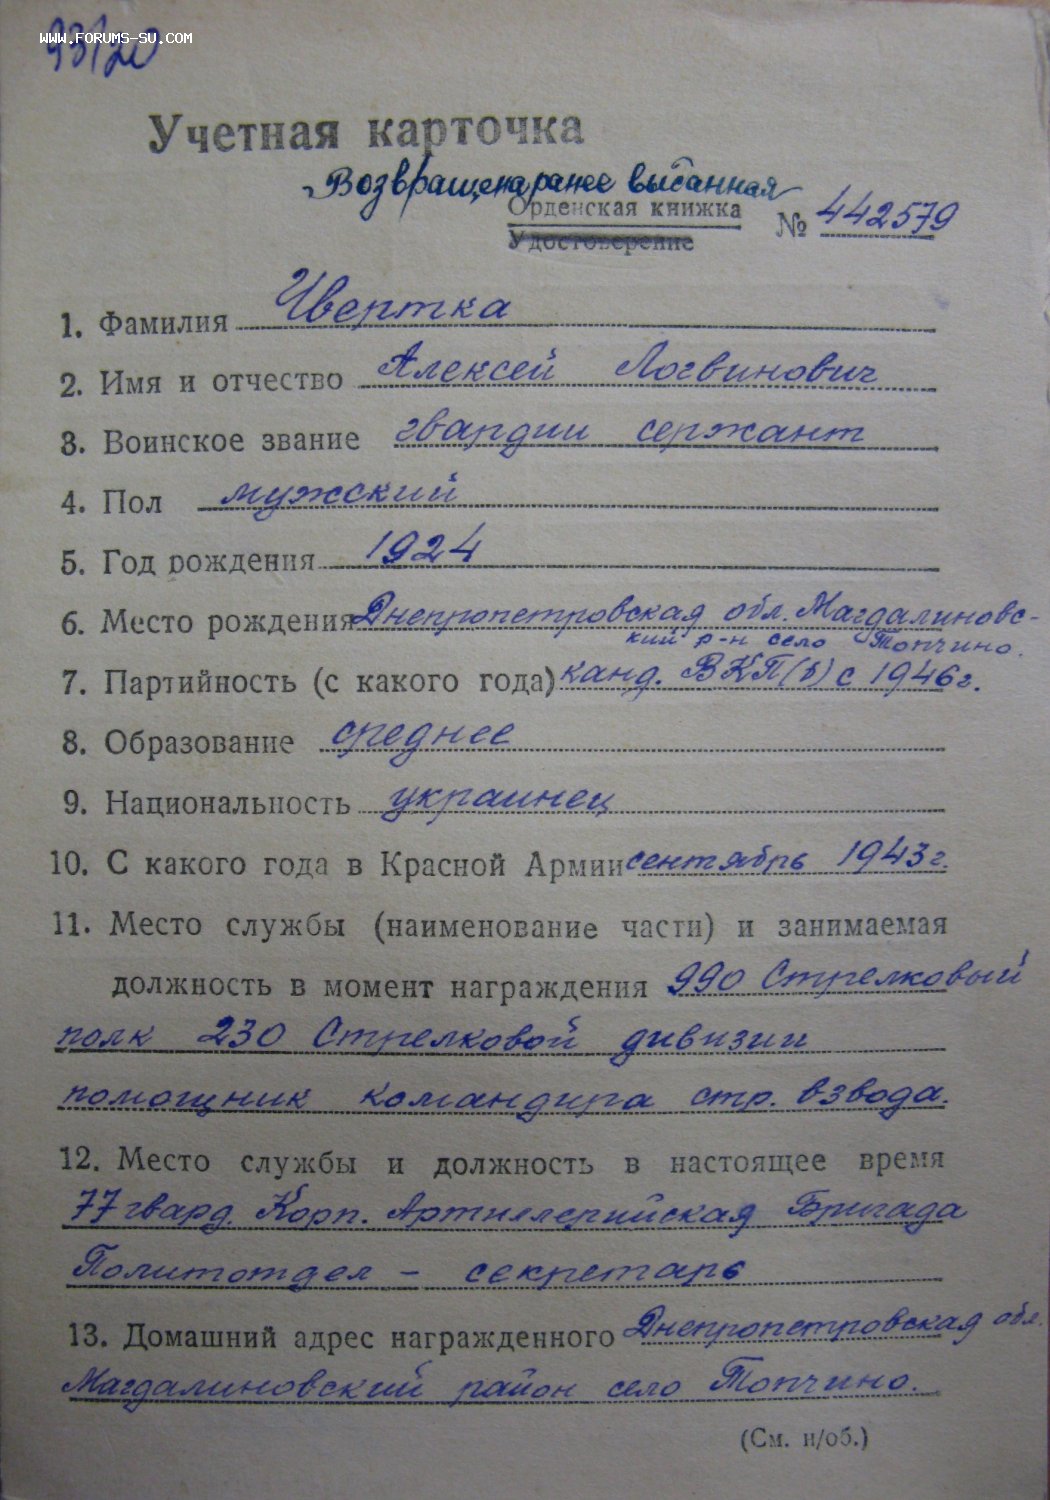 www.forums-su.com
93/20
Учетная карточка
Возвращена ранее выданная
Орденская книжка
Удостоверение
№ 442579
1. Фамилия Чвертка
2. Имя и отчество Алексей Логвинович
3. Воинское звание гвардии сержант
4. Пол мужский
5. Год рождения 1924
6. Место рождения Днепропетровская обл. Магдалиновс-
кий р-н село Топчино.
7. Партийность (с какого года) канд. ВКП(б) с 1946г.
8. Образование среднее
9. Национальность украинец
10. С какого года в Красной Армии сентябрь 1943г.
11. Место службы (наименование части) и занимаемая
должность в момент награждения 990 Стрелковый
полк 230 Стрелковой дивизии
помощник командира стр. взвода.
12. Место службы и должность в настоящее время
77 гвард. Корп. Артиллерийская Бригада
Политотдел – секретарь
13. Домашний адрес награжденного Днепропетровская обл.
Магдалиновский район село Топчино.
(См. н/об.)